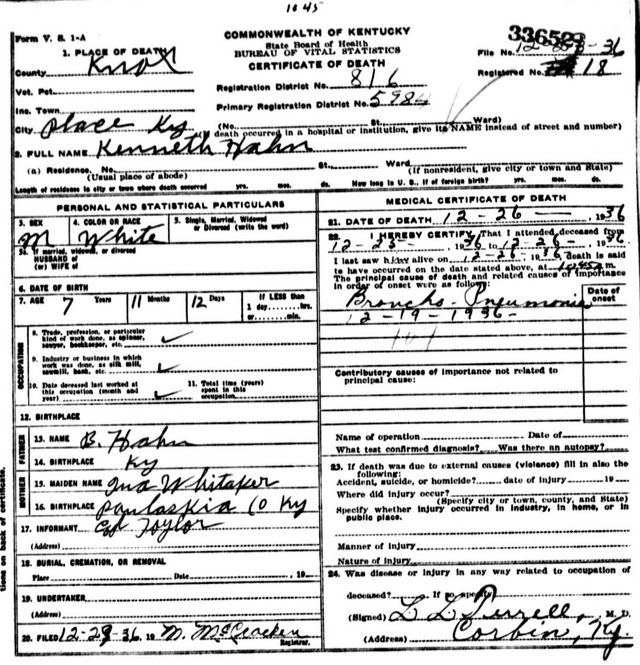 1045
Form V. S. 1-A
COMMONWEALTH OF KENTUCKY
State Board of Health
BUREAU OF VITAL STATISTICS
CERTIFICATE OF DEATH
336503
File No. 12-36
Registered No. 18
1. PLACE OF DEATH
County Knox
Registration District No. 816
Vot. Pct.
Primary Registration District No. 5984
Inc. Town
City place Ky (No. St. Ward)
(If death occurred in a hospital or institution, give its NAME instead of street and number)
2. FULL NAME Kenneth Hahn
(a) Residence. No. St. Ward
(Usual place of abode) (If nonresident, give city or town and State)
Length of residence in city or town where death occurred yrs. mos. ds. How long in U. S., if of foreign birth? yrs. mos. ds.
PERSONAL AND STATISTICAL PARTICULARS
3. SEX M
4. COLOR OR RACE White
5. Single, Married, Widowed or Divorced (write the word)
5a. If married, widowed, or divorced
HUSBAND of
(or) WIFE of
6. DATE OF BIRTH
7. AGE 7 Years 11 Months 12 Days If LESS than 1 day,......hrs. or......min.
OCCUPATION
8. Trade, profession, or particular kind of work done, as spinner, sawyer, bookkeeper, etc.
9. Industry or business in which work was done, as silk mill, sawmill, bank, etc.
10. Date deceased last worked at this occupation (month and year)
11. Total time (years) spent in this occupation
12. BIRTHPLACE
FATHER
13. NAME B. Hahn
14. BIRTHPLACE Ky
MOTHER
15. MAIDEN NAME Ina Whitaker
16. BIRTHPLACE Paulaskia Co Ky
17. INFORMANT Taylor
(Address)
18. BURIAL, CREMATION, OR REMOVAL
Place Date , 19
19. UNDERTAKER
(Address)
20. FILED 12-29-36, 19 M. McCracken
Registrar.
MEDICAL CERTIFICATE OF DEATH
21. DATE OF DEATH 12-26-, 1936
22. I HEREBY CERTIFY, That I attended deceased from
12-25-, 1936 to 12-26-, 1936.
I last saw h alive on 12-26-, 1936, death is said
to have occurred on the date stated above, at 1045 a m.
The principal cause of death and related causes of importance in order of onset were as follows:
Date of onset
Broncho-Pneumonia
12-19-1936-
Contributory causes of importance not related to principal cause:
Name of operation Date of
What test confirmed diagnosis? Was there an autopsy?
23. If death was due to external causes (violence) fill in also the following:
Accident, suicide, or homicide? date of injury 19
Where did injury occur?
(Specify city or town, county, and State)
Specify whether injury occurred in industry, in home, or in public place.
Manner of injury
Nature of injury
24. Was disease or injury in any way related to occupation of
deceased? If so, specify
(Signed) M. D.
(Address) Corbin, Ky.
tions on back of certificate.